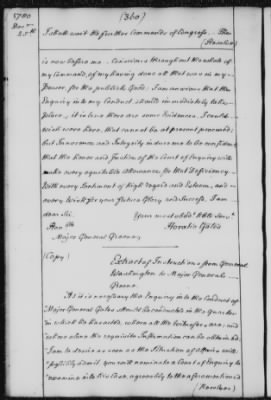 1780
Decr
25th
(360)
I shall wait the further Commands of Congress. The
(Number)
is now before me. Conscious throughout the whole of
my Command, of my having done all that was in my
Power, for the publick Good. I am anxious that the
Enquiry into my Conduct should immediately take
place, it is true there are some Evidences, I could
wish were here, that cannot be at present procured
but Innocence and Integrity induce me to be confident
that the Honor and Justice of the Court of Enquiry will
make every equitable allowance for that Deficiency
With every Sentiment of High regard and Esteem, and
every Wish for your future Glory and Success, I am
dear Sir.
Your most Obedt Hble Servt
Horatio Gates
Honble
Major General Greene.
(Copy)
Extract of Instructions from General
Washington to Major General
Greene.
As it is necessary the Enquiry in to the Conduct of
Major General Gates should be conducted in the Quarter
in which he has acted, where all the Witnesses are, and
where alone the requisite Information can be obtained
I am to desire as soon as the Situation of Affairs will
possibly admit, you will nominate a Court of Enquiry to
examine into his Case, agreeably to the aforementioned
(Number)